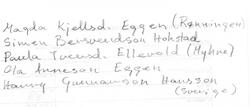 Magda Kjellsd. Eggen (Rønningen)
Simen Berntvendsen Hokstad
Paula Tveensd. Ellevold (Myhre)
Ola Anneson Eggen
Harry Gunnarson Hansson
(Sverige)